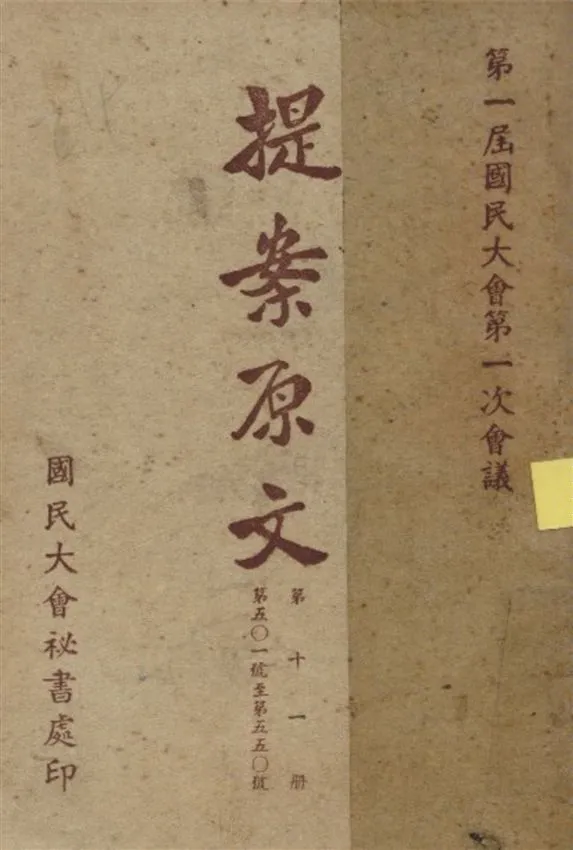 第一屆國民大會第一次會議
提案原文
第十一册
第五〇一號至第五五〇號
國民大會祕書處印